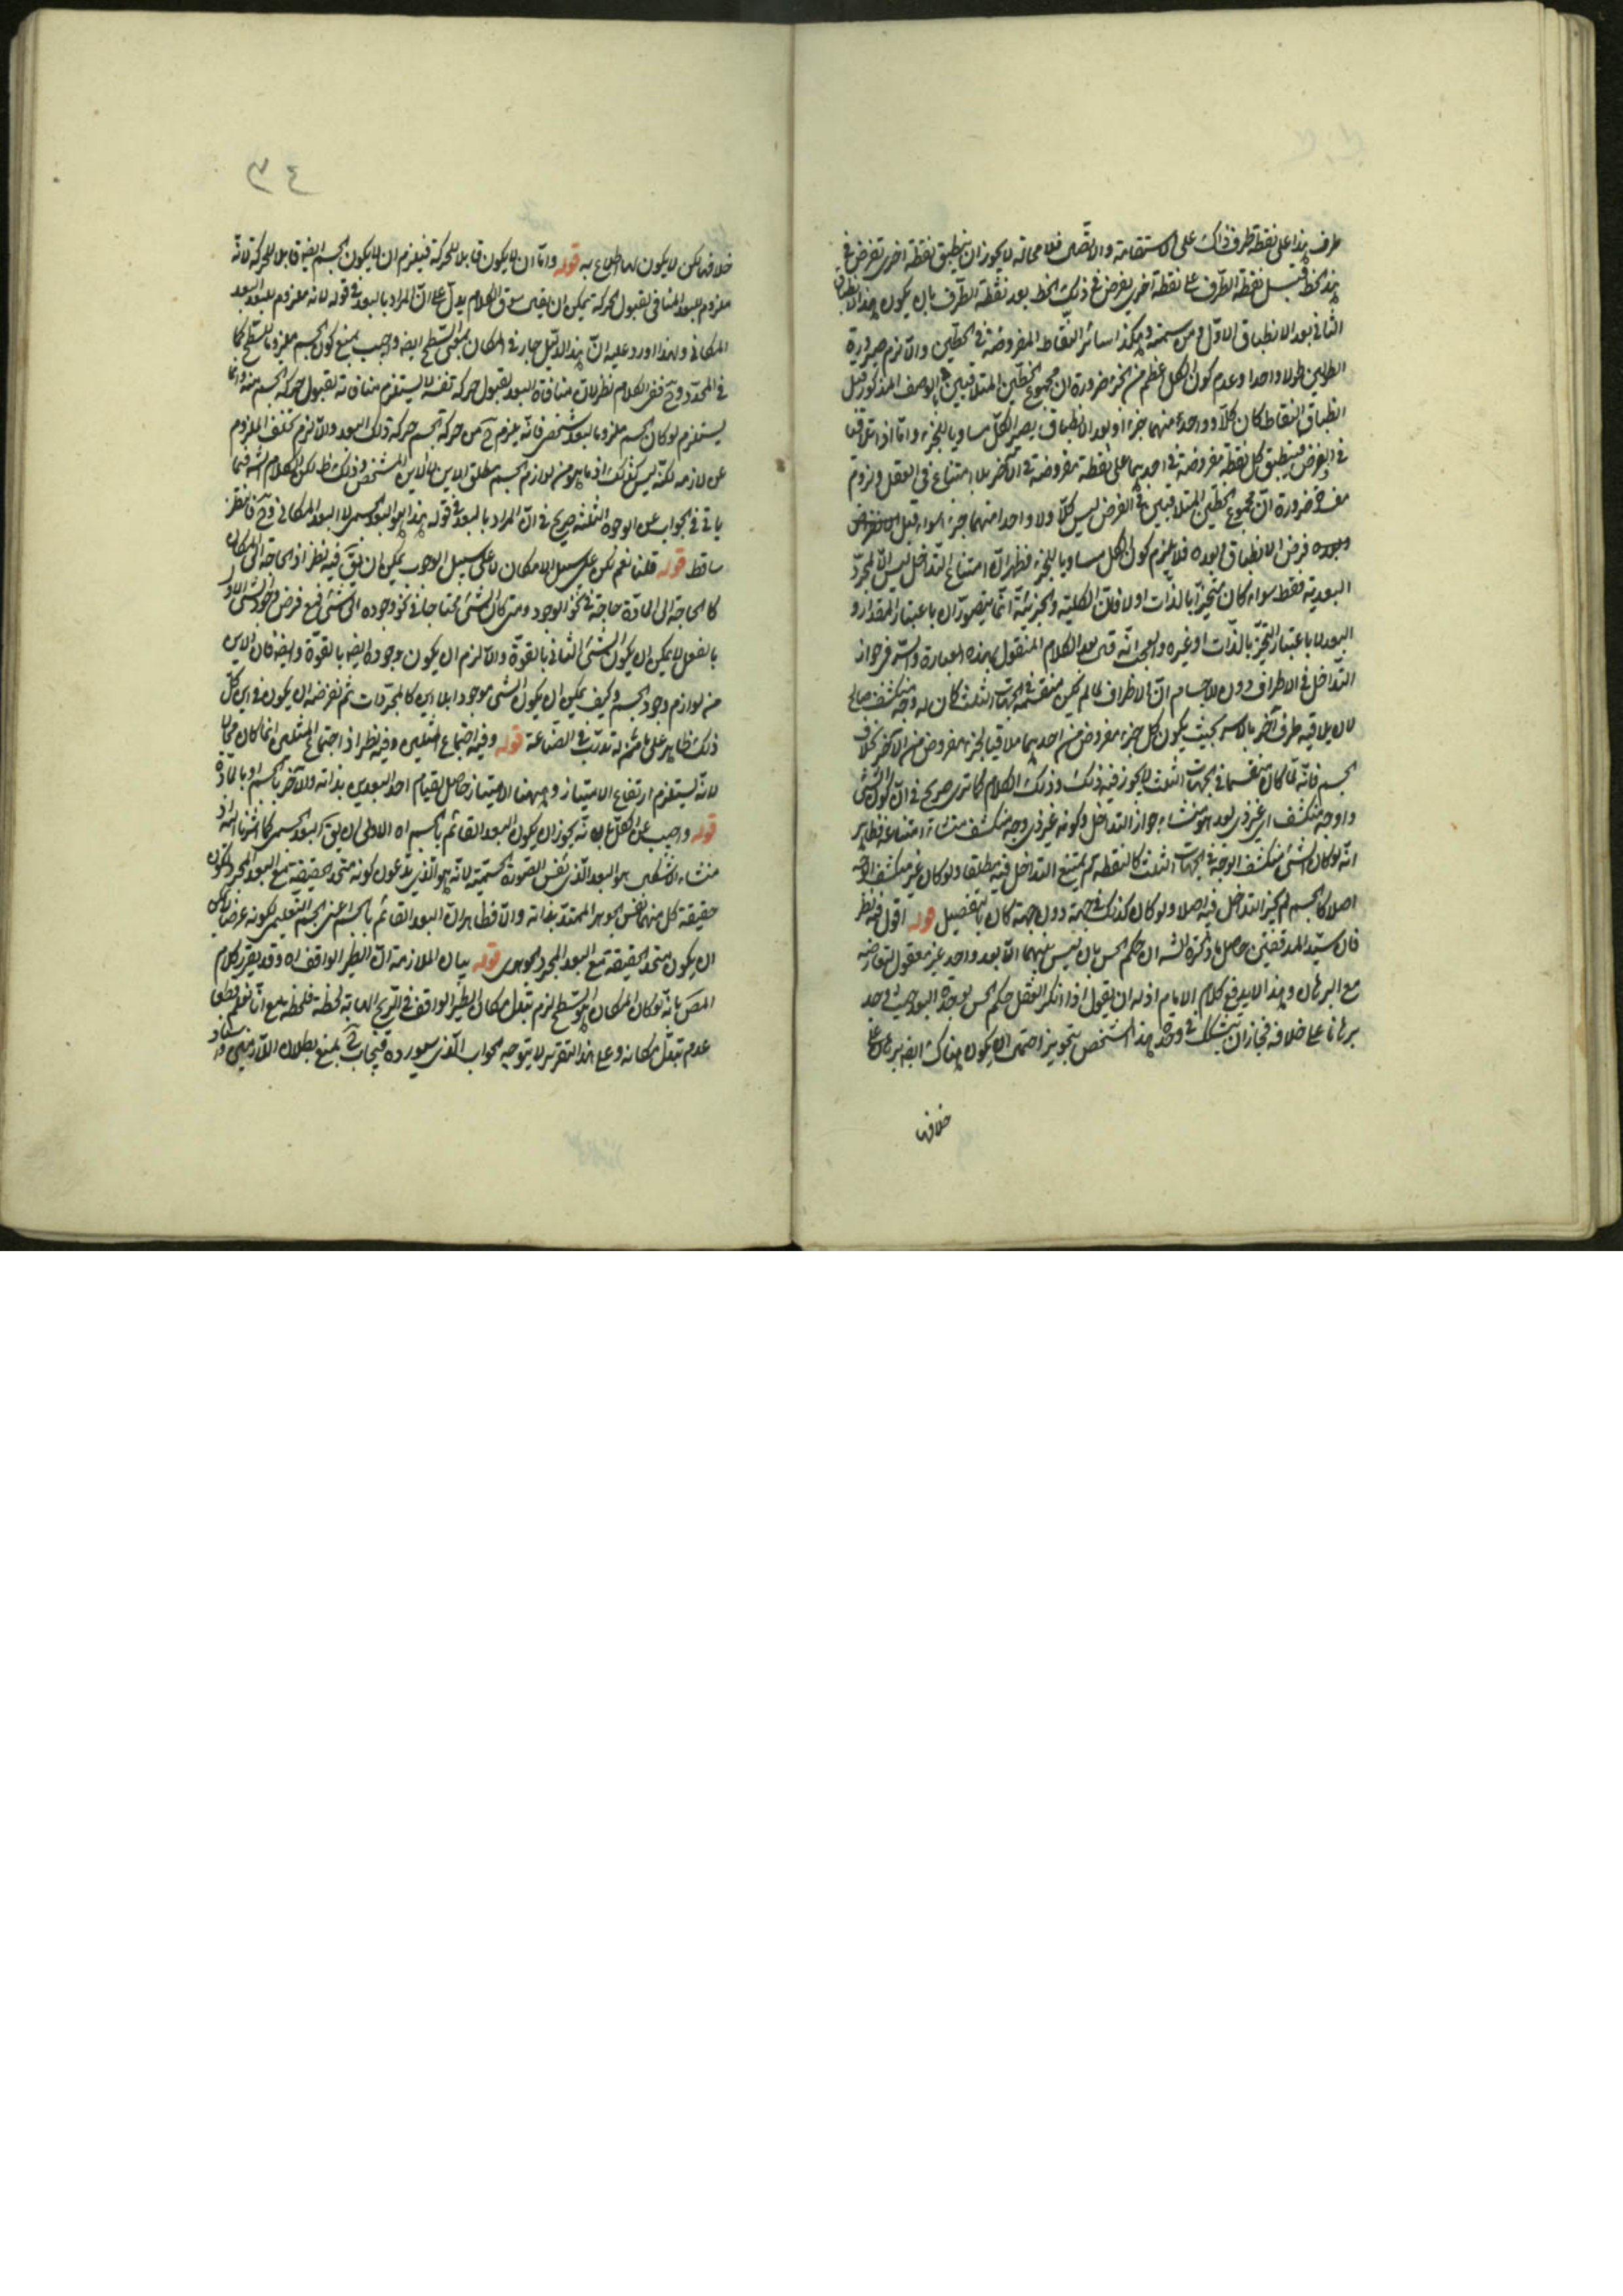 طرف هذا على نقطة طرف ذاك على الاستقامة والاتصال فلا محالة لا يجوز ان ينطبق نقطة اخرى تفرض في
هذا الخط قبل نقطة الطرف على نقطة اخرى يفرض في ذلك الخط بعد نقطة الطرف بان يكون هذا الانطباق
الثاني بعد الانطباق الاول ومن سمته وهكذا سائر النقاط المفروضة في الخطين والا لزم صيرورة
الطولين طولا واحدا وعدم كون الكل اعظم من الجزء ضرورة ان مجموع الخطين المتلاقيين الوصف المذكور قبل
انطباق النقاط كان كلا وواحد منهما جزءا وبعد الانطباق يصير الكل مساويا للجزء واما اذا تلاقيا
في العرض فينطبق كل نقطة مفروضة في احدهما على نقطة مفروضة في الآخر بلا امتناع في العقل ولزوم
مفسدة ضرورة ان مجموع الخطين المتلاقيين في العرض ليس كلا ولا واحد منهما جزء سواء قبل
وبعده فرض الانطباق بعده فلا يلزم كون الكل مساويا للجزء فظهر ان امتناع التداخل ليس الا لمجرد
البعدية فقط سواء كان متحيزا بالذات او لا فان الكلية والجزئية انما يتصوران باعتبار المقدار و
البعد لا باعتبار التحيز بالذات او غيره والعجب انه قال بعد الكلام المنقول بهذه العبارة والسر في جواز
التداخل في الاطراف دون الاجسام ان الاطراف لما لم يكن منقسمة في الجهات الثلث كان له وجه منكشف صالح
لان يلاقيه طرف آخر بالاسر بحيث يكون كل جزء مفروض من احدهما ملاقيا لجزء مفروض من الآخر بخلاف
الجسم فانه لما كان منقسما في الجهات الثلث لا يجوز فيه ذلك وذلك الكلام كما ترى صريح في ان كون الشئ
ذا وجه منكشف اي غير ذي بعد هو منشاء جواز التداخل وكونه غير ذي وجه منكشف منشاء امتناعه فظاهر
انه لو كان الشئ منكشف الوجه في الجهات الثلث كالنقطة لم يمتنع التداخل فيه مطلقا ولو كان غير منكشف الوجه
اصلا كالجسم لم يجز التداخل فيه اصلا ولو كان كذلك في جهة دون جهة كان بالتفصيل قوله اقول فيه نظر
فان سيد المدققين حاصل ما ذكره الشه ان حكم الحس بان ليس بينهما الا بعد واحد غير معقول لتعارضه
مع البرهان وهذا لا يدفع كلام الامام اذ له ان يقول اذا انكر العقل حكم الحس بوحدة البعد حيث وجد
برهانا على خلافه فجاز ان يتشكك في وحدة هذا الشخص بتجويز احتمال ان يكون هناك ايضا برهان على
خلافها
٣٤
خلافها لكن لا يكون لها اطلاع به قوله واما ان لا يكون قابلا للحركة فيلزم ان لا يكون الجسم ايضا قابلا للحركة لانه
ملزوم للبعد المنافي لقبول الحركة يمكن ان يقال سوق الكلام يدل على ان المراد بالبعد في قوله لانه ملزوم للبعد البعد
المكاني ولهذا اورد عليه ان هذا الدليل جار في المكان بمعنى السطح ايضا واجيب بمنع كون الجسم ملزوما للسطح كما
في المحدد وح ففي الكلام نظر لان منافاة البعد لقبول حركة نفسه لا يستلزم منافاته لقبول حركة الجسم منه وانما
يستلزم لو كان الجسم ملزوما لبعد شخصي فانه يلزم ح من حركة الجسم حركة ذلك البعد والا لزم تخلف الملزوم
عن لازمه لكنه ليس كذلك اذ ما هو من لوازم الجسم مطلق الاين لا الاين المشخص وذلك ظ لكن الكلام الشه فيما
يأتي في الجواب عن الوجوه الثلثة صريح في ان المراد بالبعد في قوله هذا هو البعد الجسمي لا البعد المكاني وح فالنظر
ساقط قوله قلنا نعم لكن على سبيل الامكان لا على سبيل الوجوب يمكن ان يق فيه نظر اذ الحاجة الى المكان
كالحاجة الى المادة حاجة في نحو الوجود ومتى كان الشئ محتاجا في نحو وجوده الى شئ فمع فرض وجود الشئ الاول
بالفعل لا يمكن ان يكون الشئ الثاني بالقوة والا لزم ان يكون وجوده ايضا بالقوة وايضا فان الاين
من لوازم وجود الجسم وكيف يمكن ان يكون الشئ موجودا بلا اين كالمجردات ثم نفرضه ان يكون ذو اين كل
ذلك ظاهر على من له تدرب في الصناعة قوله وفيه اجتماع المثلين وفيه نظر اذ اجتماع المثلين انما كان محالا
لانه يستلزم ارتفاع الامتياز وههنا الامتياز حاصل لقيام احد البعدين بذاته والآخر بالجسم او بالمادة
قوله واجيب عن الكل بانه يجوز ان يكون البعد القائم بالجسم اه الاولى ان يق البعد الجسمي كما اشرنا اليه اذ
منشاء الاشكال هو البعد الذي نفس الصورة الجسمية لانه هو الذي يدعون كونه متحد الحقيقة مع البعد المجرد لكون
حقيقة كل منهما نفس الجوهر الممتد بذاته والا فظاهر ان البعد القائم بالجسم اعني الجسم التعليمي لكونه عرضا لا يمكن
ان يكون متحد الحقيقة مع البعد المجرد الجوهري قوله بيان الملازمة ان الطير الواقف اه وقد يقرر كلام
المصـ بانه لو كان المكان هو السطح لزم تبدل مكان الطير الواقف في الريح الهابة لحظة فلحظة مع انا نعلم قطعا
عدم تبدل مكانه وعلى هذا التقرير لا يتوجه الجواب الذي سيورده فيجاب ح بمنع بطلان اللازم